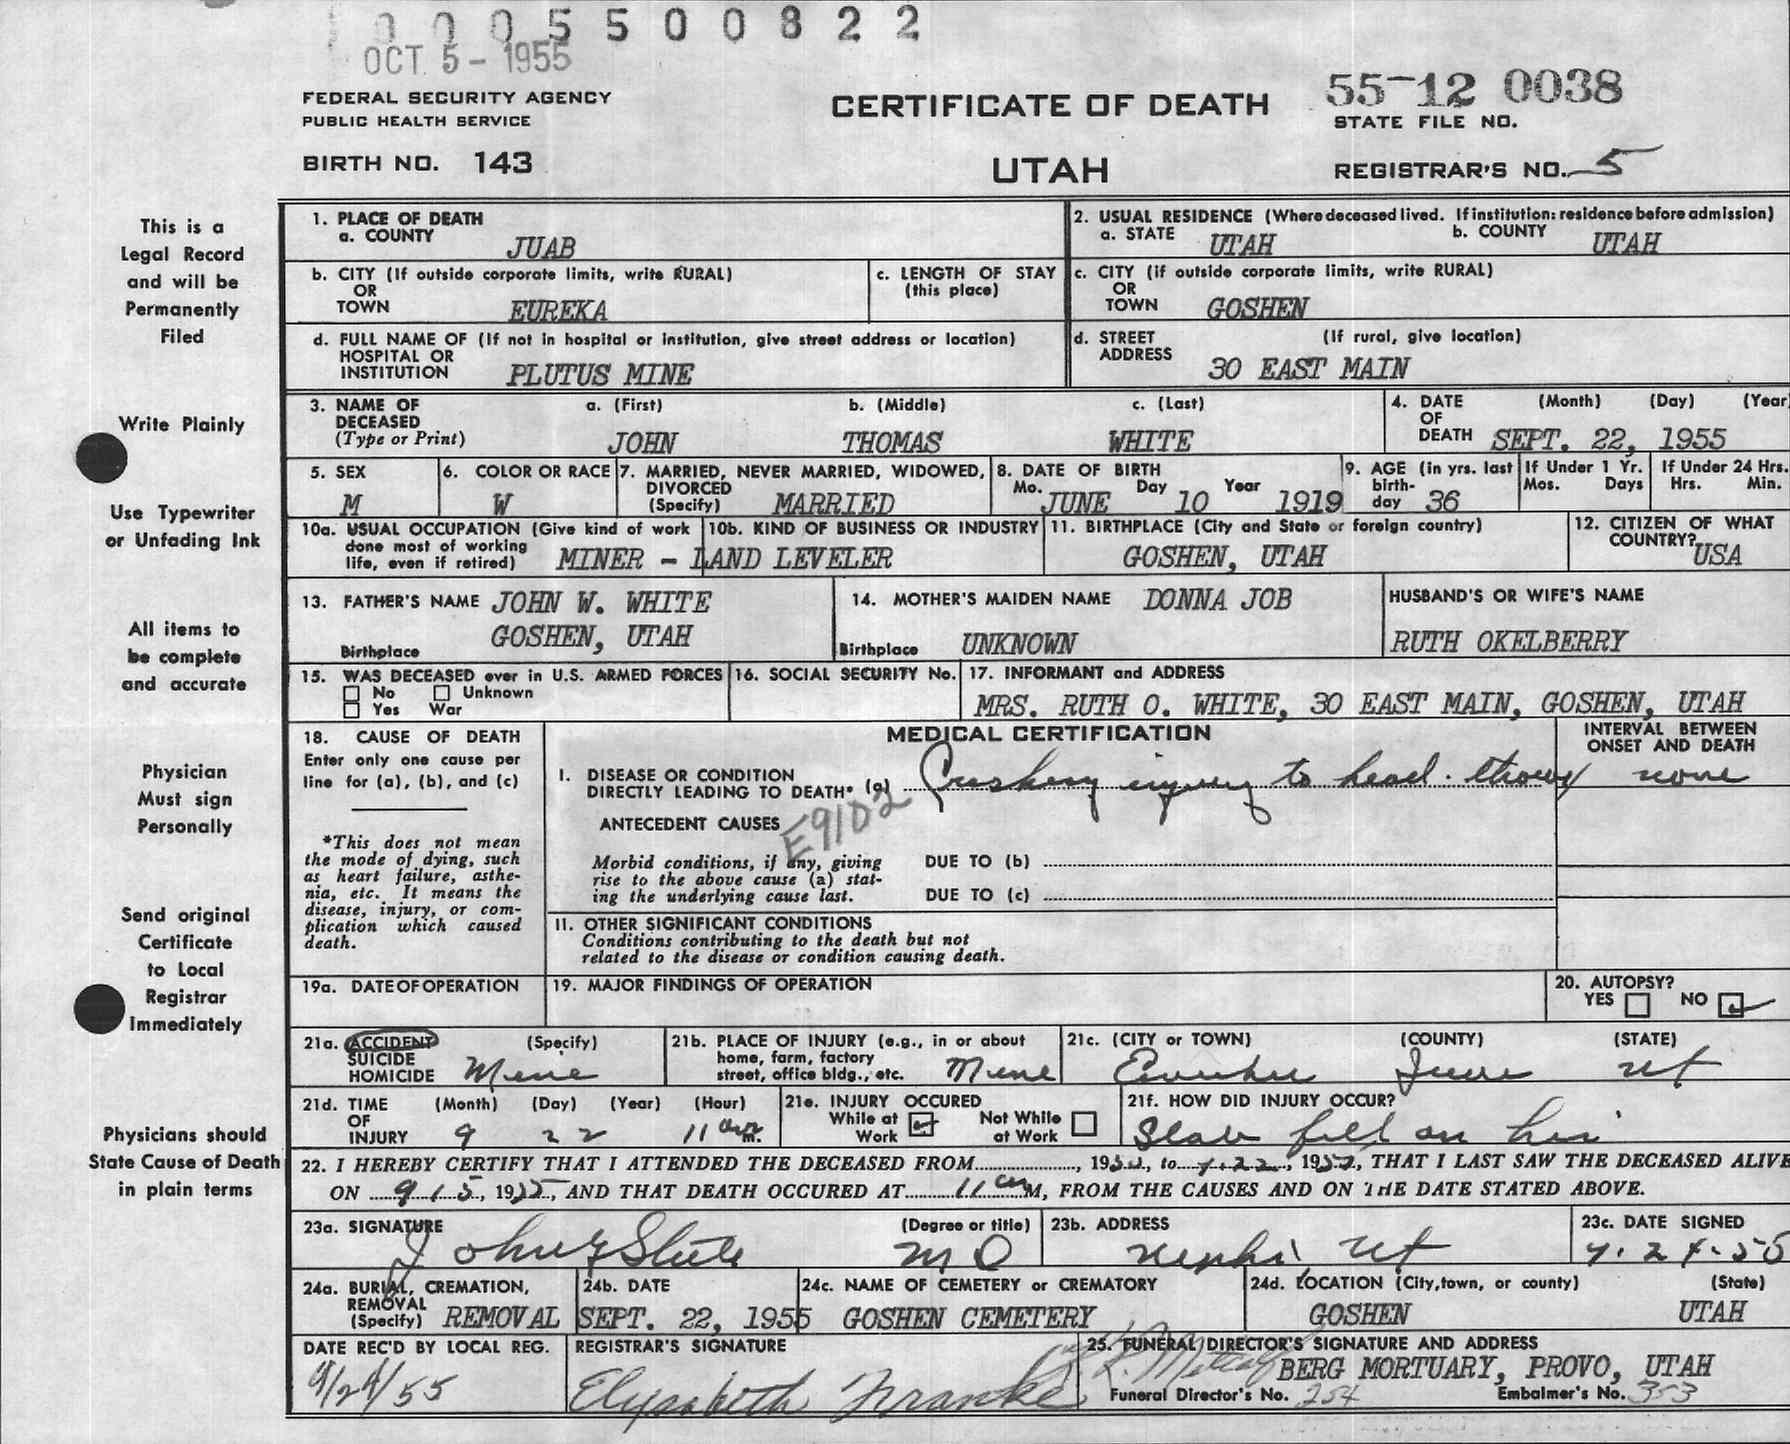 0005500822
OCT 5 - 1955
FEDERAL SECURITY AGENCY
PUBLIC HEALTH SERVICE
CERTIFICATE OF DEATH
55-12 0038
STATE FILE NO.
BIRTH NO. 143
UTAH
REGISTRAR'S NO. 5
This is a
Legal Record
and will be
Permanently
Filed
Write Plainly
Use Typewriter
or Unfading Ink
All items to
be complete
and accurate
Physician
Must sign
Personally
Send original
Certificate
to Local
Registrar
Immediately
Physicians should
State Cause of Death
in plain terms
1. PLACE OF DEATH
a. COUNTY JUAB
2. USUAL RESIDENCE (Where deceased lived. If institution: residence before admission)
a. STATE UTAH b. COUNTY UTAH
b. CITY (If outside corporate limits, write RURAL)
OR
TOWN EUREKA
c. LENGTH OF STAY
(this place)
c. CITY (if outside corporate limits, write RURAL)
OR
TOWN GOSHEN
d. FULL NAME OF (If not in hospital or institution, give street address or location)
HOSPITAL OR
INSTITUTION PLUTUS MINE
d. STREET (If rural, give location)
ADDRESS 30 EAST MAIN
3. NAME OF a. (First) b. (Middle) c. (Last)
DECEASED
(Type or Print) JOHN THOMAS WHITE
4. DATE (Month) (Day) (Year
OF
DEATH SEPT. 22, 1955
5. SEX
M
6. COLOR OR RACE
W
7. MARRIED, NEVER MARRIED, WIDOWED,
DIVORCED
(Specify) MARRIED
8. DATE OF BIRTH
Mo. JUNE Day 10 Year 1919
9. AGE (in yrs. last
birth-
day 36
If Under 1 Yr.
Mos. Days
If Under 24 Hrs.
Hrs. Min.
10a. USUAL OCCUPATION (Give kind of work
done most of working
life, even if retired) MINER - LAND LEVELER
10b. KIND OF BUSINESS OR INDUSTRY
11. BIRTHPLACE (City and State or foreign country)
GOSHEN, UTAH
12. CITIZEN OF WHAT
COUNTRY?
USA
13. FATHER'S NAME JOHN W. WHITE
Birthplace GOSHEN, UTAH
14. MOTHER'S MAIDEN NAME DONNA JOB
Birthplace UNKNOWN
HUSBAND'S OR WIFE'S NAME
RUTH OKELBERRY
15. WAS DECEASED ever in U.S. ARMED FORCES
No Unknown
Yes War
16. SOCIAL SECURITY No.
17. INFORMANT and ADDRESS
MRS. RUTH O. WHITE, 30 EAST MAIN, GOSHEN, UTAH
18. CAUSE OF DEATH
Enter only one cause per
line for (a), (b), and (c)
*This does not mean
the mode of dying, such
as heart failure, asthe-
nia, etc. It means the
disease, injury, or com-
plication which caused
death.
MEDICAL CERTIFICATION
INTERVAL BETWEEN
ONSET AND DEATH
I. DISEASE OR CONDITION
DIRECTLY LEADING TO DEATH* (a) Crushing injury to head. none
E9102
ANTECEDENT CAUSES
Morbid conditions, if any, giving
rise to the above cause (a) stat-
ing the underlying cause last.
DUE TO (b)
DUE TO (c)
II. OTHER SIGNIFICANT CONDITIONS
Conditions contributing to the death but not
related to the disease or condition causing death.
19a. DATE OF OPERATION
19. MAJOR FINDINGS OF OPERATION
20. AUTOPSY?
YES NO
21a. ACCIDENT (Specify)
SUICIDE
HOMICIDE Mine
21b. PLACE OF INJURY (e.g., in or about
home, farm, factory
street, office bldg., etc. Mine
21c. (CITY or TOWN) (COUNTY) (STATE)
Eureka Juab Ut
21d. TIME (Month) (Day) (Year) (Hour)
OF
INJURY 9 22 11 am m.
21e. INJURY OCCURED
While at Work
Not While at Work
21f. HOW DID INJURY OCCUR?
Slab fell on him
22. I HEREBY CERTIFY THAT I ATTENDED THE DECEASED FROM , 19 , to 9.22, 1955, THAT I LAST SAW THE DECEASED ALIVE
ON 9 15, 1955, AND THAT DEATH OCCURED AT 11 am M, FROM THE CAUSES AND ON THE DATE STATED ABOVE.
23a. SIGNATURE (Degree or title)
John MD
23b. ADDRESS
Nephi Ut
23c. DATE SIGNED
9.24.55
24a. BURIAL, CREMATION,
REMOVAL
(Specify) REMOVAL
24b. DATE
SEPT. 22, 1955
24c. NAME OF CEMETERY or CREMATORY
GOSHEN CEMETERY
24d. LOCATION (City, town, or county) (State)
GOSHEN UTAH
DATE REC'D BY LOCAL REG.
9/24/55
REGISTRAR'S SIGNATURE
Elysabeth Franke
25. FUNERAL DIRECTOR'S SIGNATURE AND ADDRESS
BERG MORTUARY, PROVO, UTAH
Funeral Director's No. 254 Embalmer's No. 353